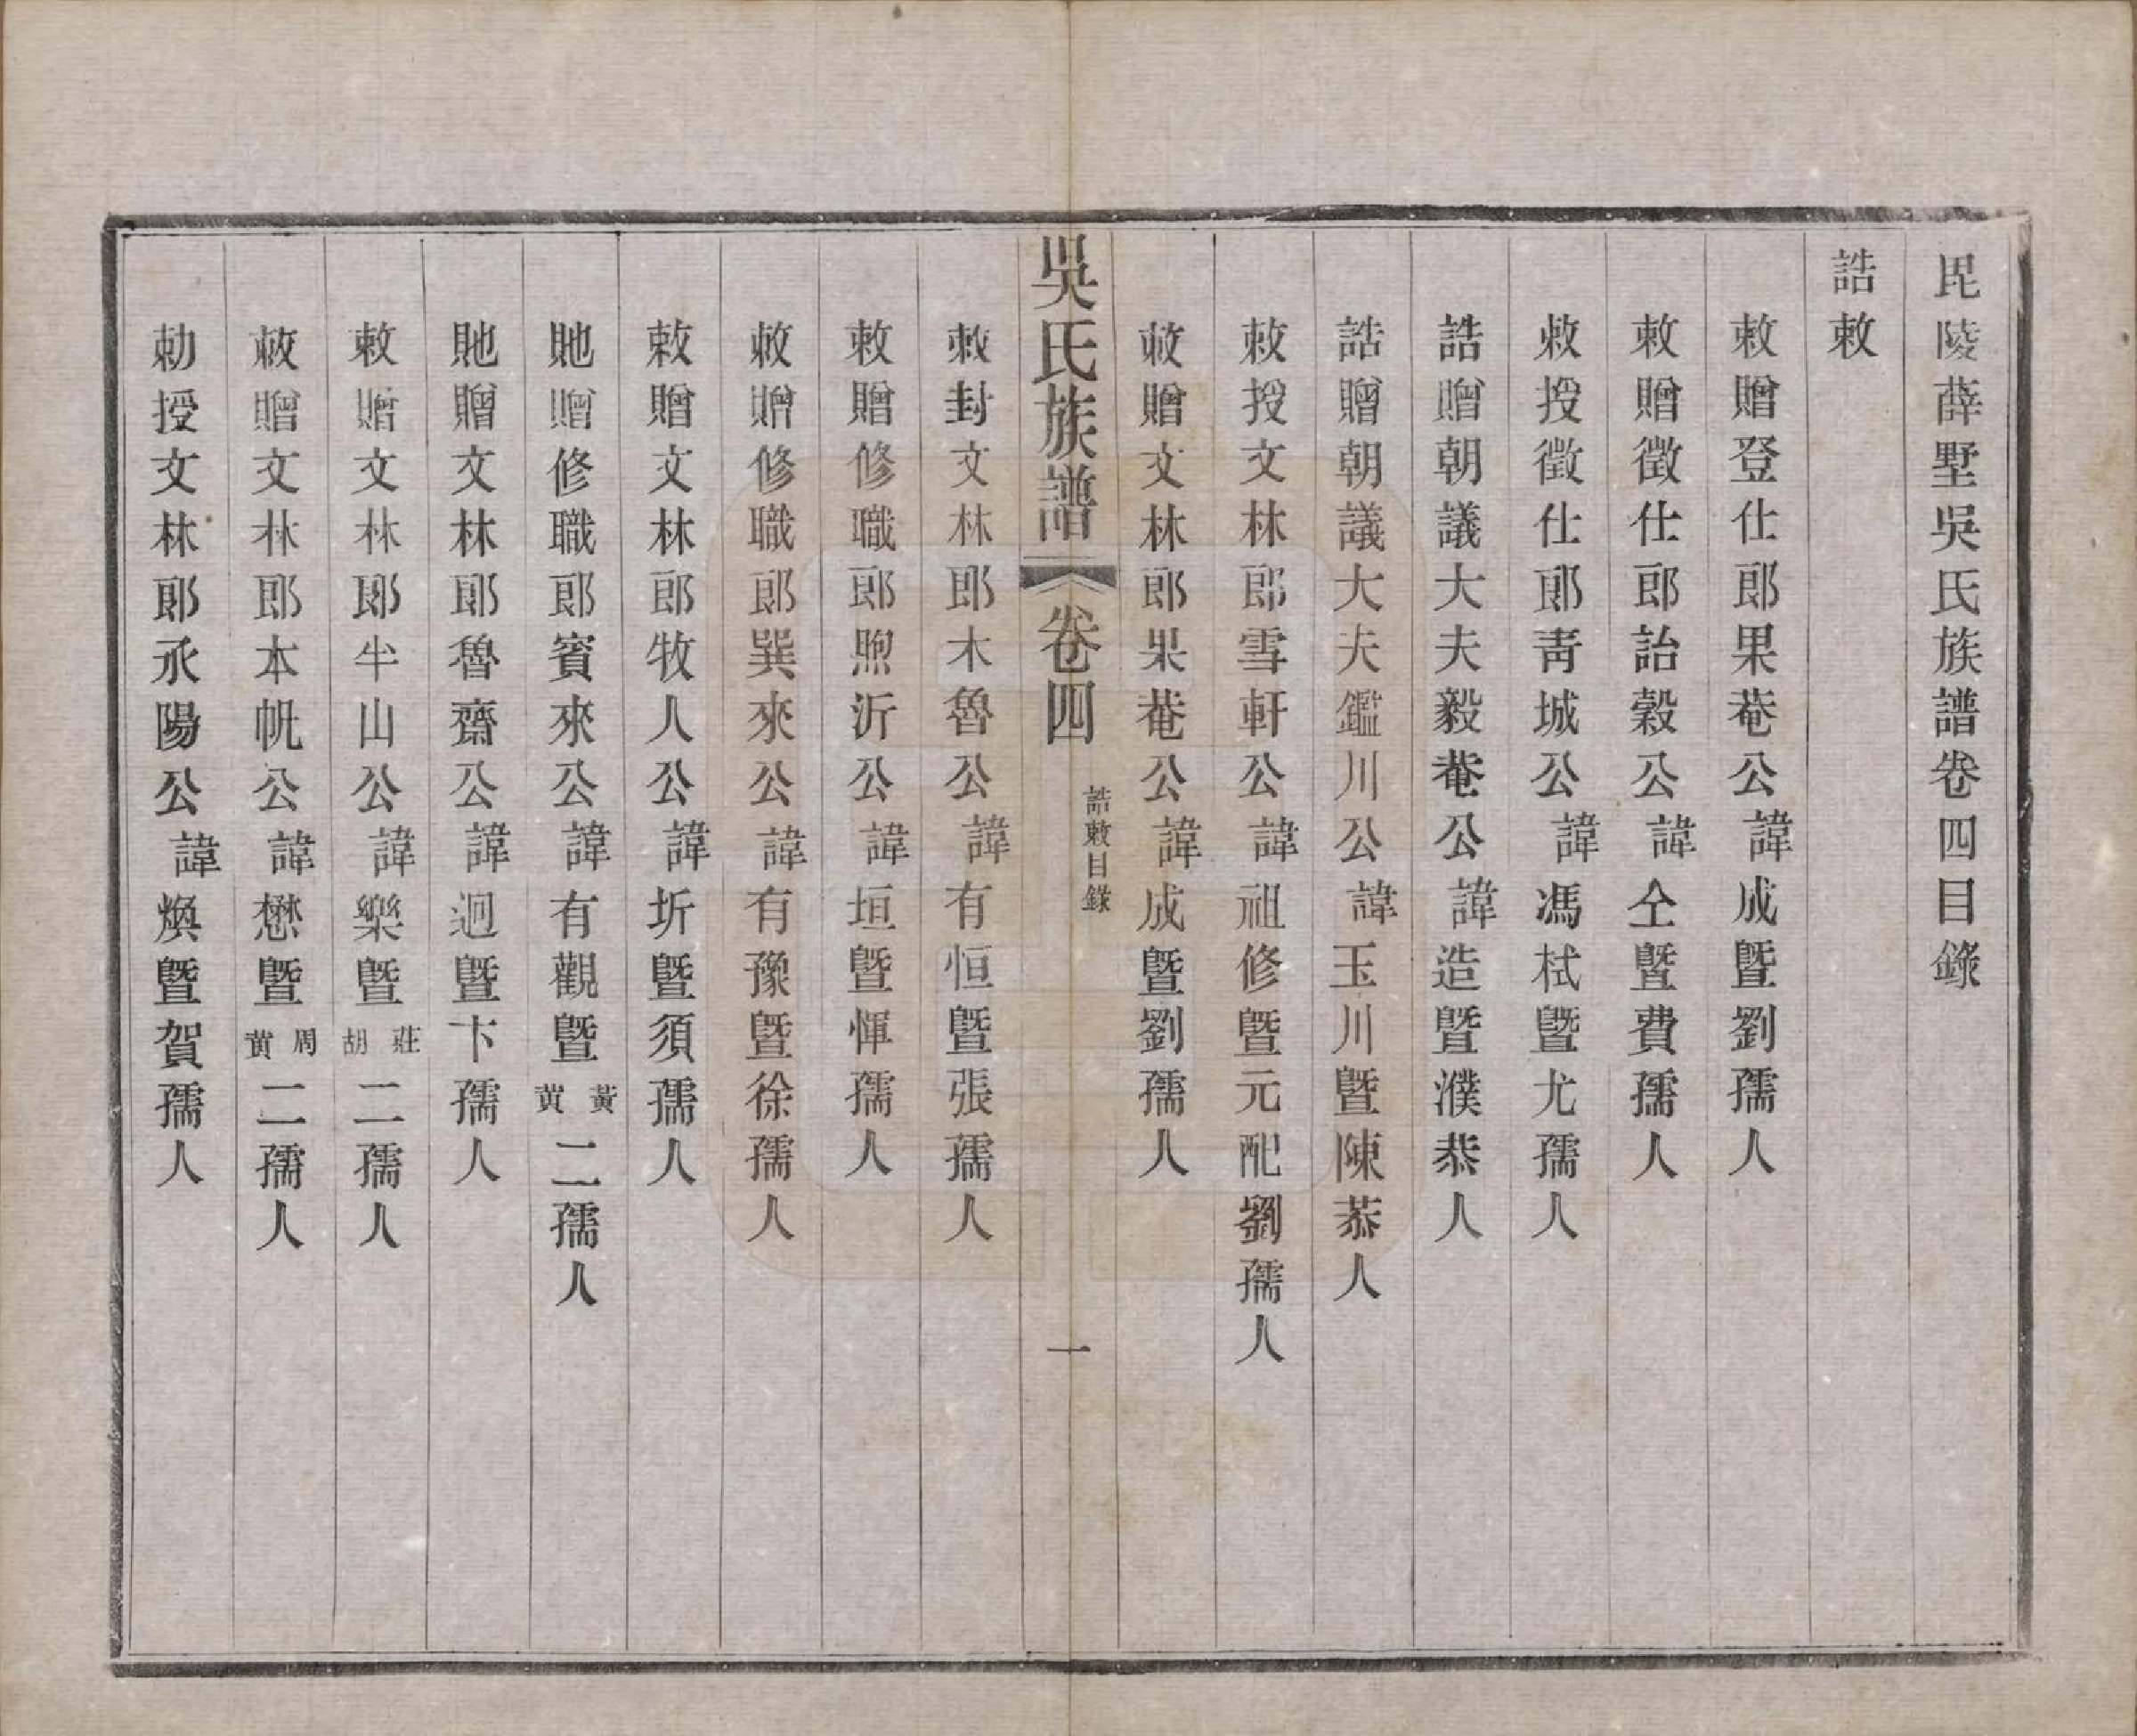 毘陵薛墅吳氏族譜卷四目錄
誥敕
敕贈登仕郎果菴公諱成暨劉孺人
敕贈徵仕郎詒穀公諱仝暨費孺人
敕授徵仕郎靑城公諱馮栻暨尤孺人
誥贈朝議大夫毅菴公諱造暨濮恭人
誥贈朝議大夫鑑川公諱玉川暨陳恭人
敕授文林郎雪軒公諱祖修暨元配劉孺人
敕贈文林郎果菴公諱成暨劉孺人
吳氏族譜 卷四 誥敕目錄 一
敕封文林郎木魯公諱有恒暨張孺人
敕贈修職郎煦沂公諱垣暨惲孺人
敕贈修職郎巽來公諱有豫暨徐孺人
敕贈文林郎牧人公諱圻暨須孺人
貤贈修職郎賓來公諱有觀暨黃黄二孺人
貤贈文林郎魯齋公諱迥暨卞孺人
敕贈文林郎半山公諱樂暨莊胡二孺人
敕贈文林郎本帆公諱懋暨周黄二孺人
勅授文林郎丞陽公諱煥暨賀孺人